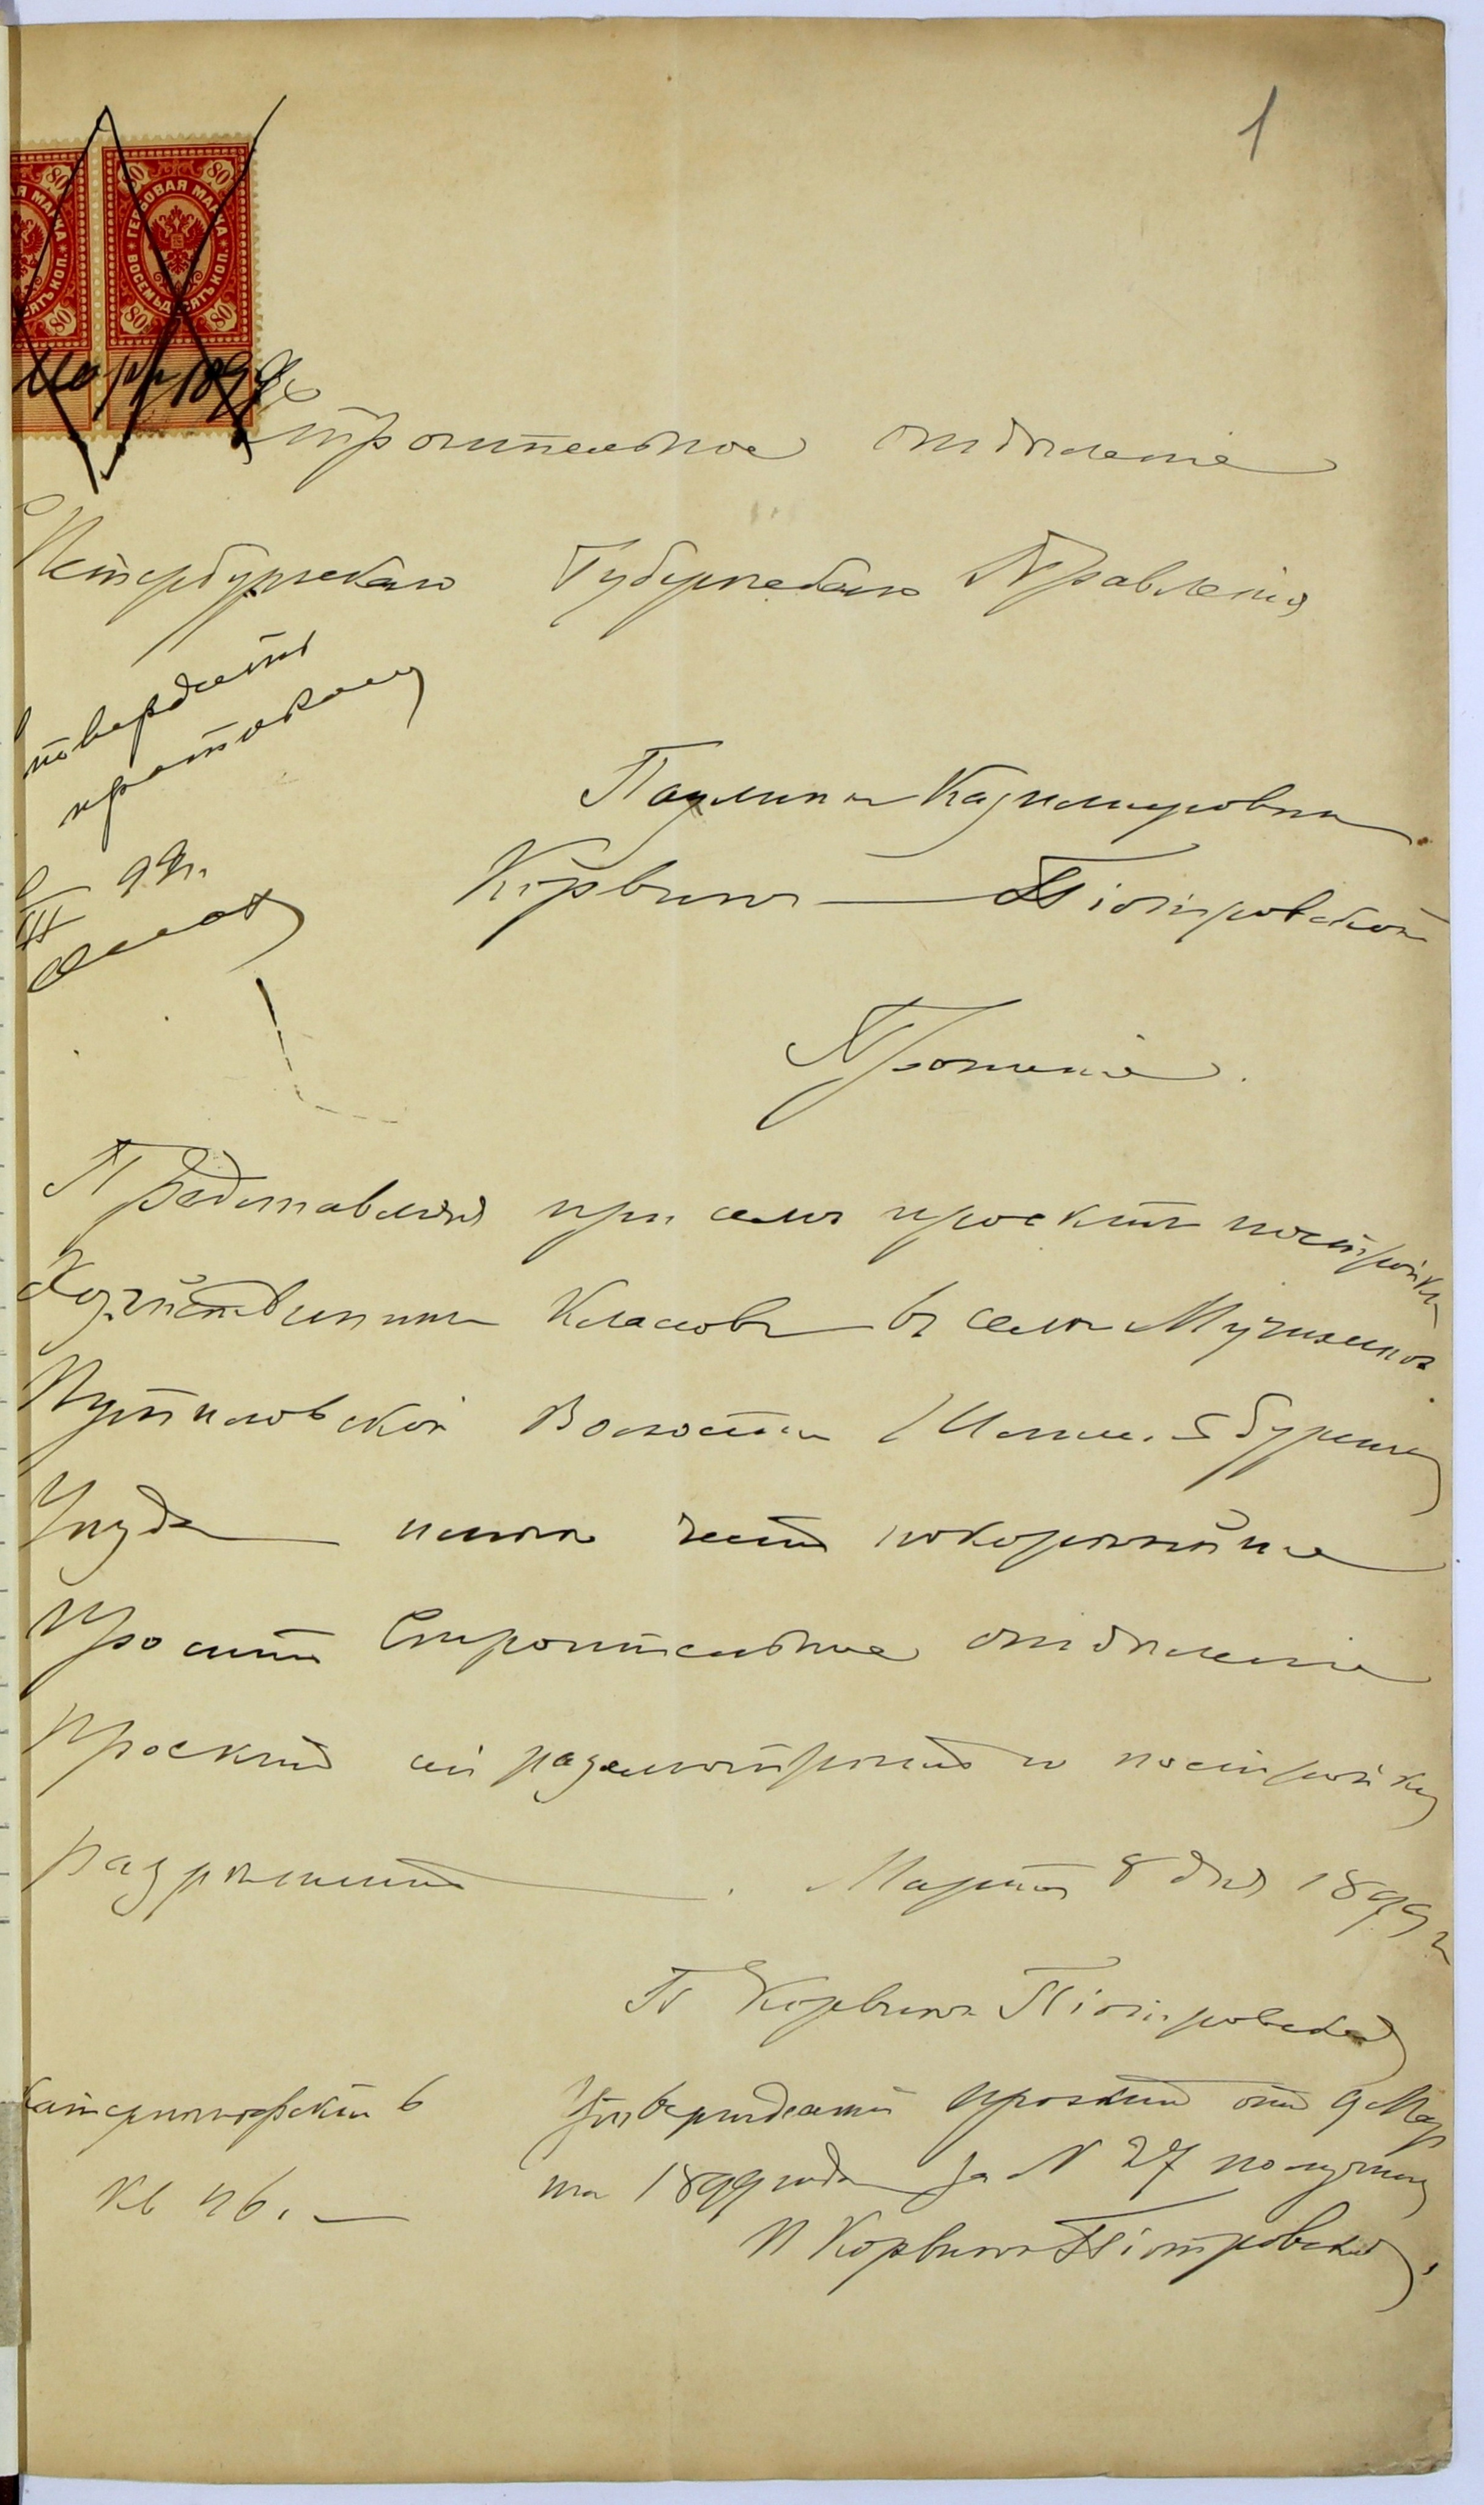 1
ГЕРБОВАЯ МАРКА
ВОСЕМЬДЕСЯТЪ КОП.
80
Строительное отдѣленіе
Петербургскаго Губернскаго Правленія
утвердить
протоколу
99г.
Паулины Казимировны
Корвинъ-Піотровской
Прошеніе.
Представляя при семъ проектъ постройки
Хозяйственныхъ Классовъ въ селѣ Мучихинѣ
Путиловской Волости Шлиссельбургск
Уѣзда имѣю честь покорнѣйше
просить Строительное отдѣленіе
проектъ сей разсмотрѣть и постройку
разрѣшить. Марта 8 дня 1899 г
П Корвинъ Піотровская
Екатерингофскій 6
кв 46.
Утвержденный проектъ отъ 9 Мар
та 1899 года за N 27 получила
П Корвинъ Піотровская